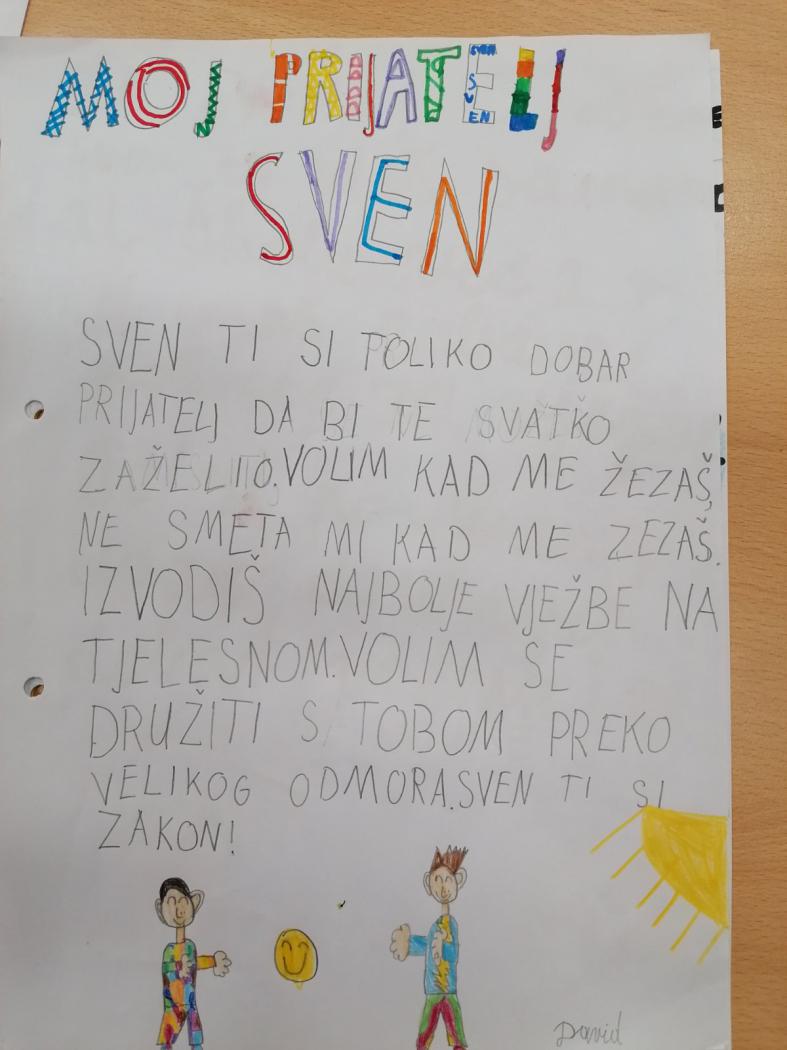 MOJ PRIJATELJ
SVEN
SVEN TI SI TOLIKO DOBAR
PRIJATELJ DA BI TE SVATKO
ZAŽELIO. VOLIM KAD ME ŽEZAŠ,
NE SMETA MI KAD ME ZEZAŠ.
IZVODIŠ NAJBOLJE VJEŽBE NA
TJELESNOM. VOLIM SE
DRUŽITI S TOBOM PREKO
VELIKOG ODMORA. SVEN TI SI
ZAKON!
David